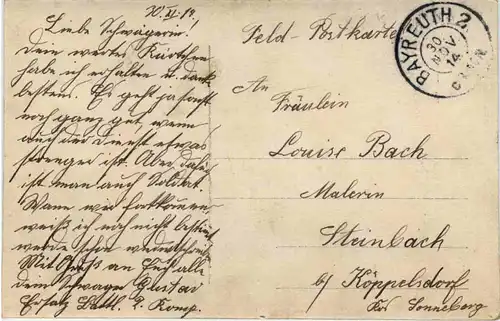 30.XI.14.
Liebe Schwägerin!
Dein wertes Kärtchen
habe ich erhalten u. danke
bestens. Es geht ja sonst
noch ganz gut, wenn
auch der Dienst etwas
strenger ist. Aber dafür
ist man auch Soldat.
Wann wir fortkommen,
weiß ich noch nicht bestimmt
werde schon
Mit Gruß an Euch alle
dein Schwager Gustav
Ersatz Battl. 2. Komp.
Feld-Postkarte
BAYREUTH 2.
30
NOV
14
An
Fräulein
Louise Bach
Malerin
Steinbach
b/ Köppelsdorf
Krs Sonneberg